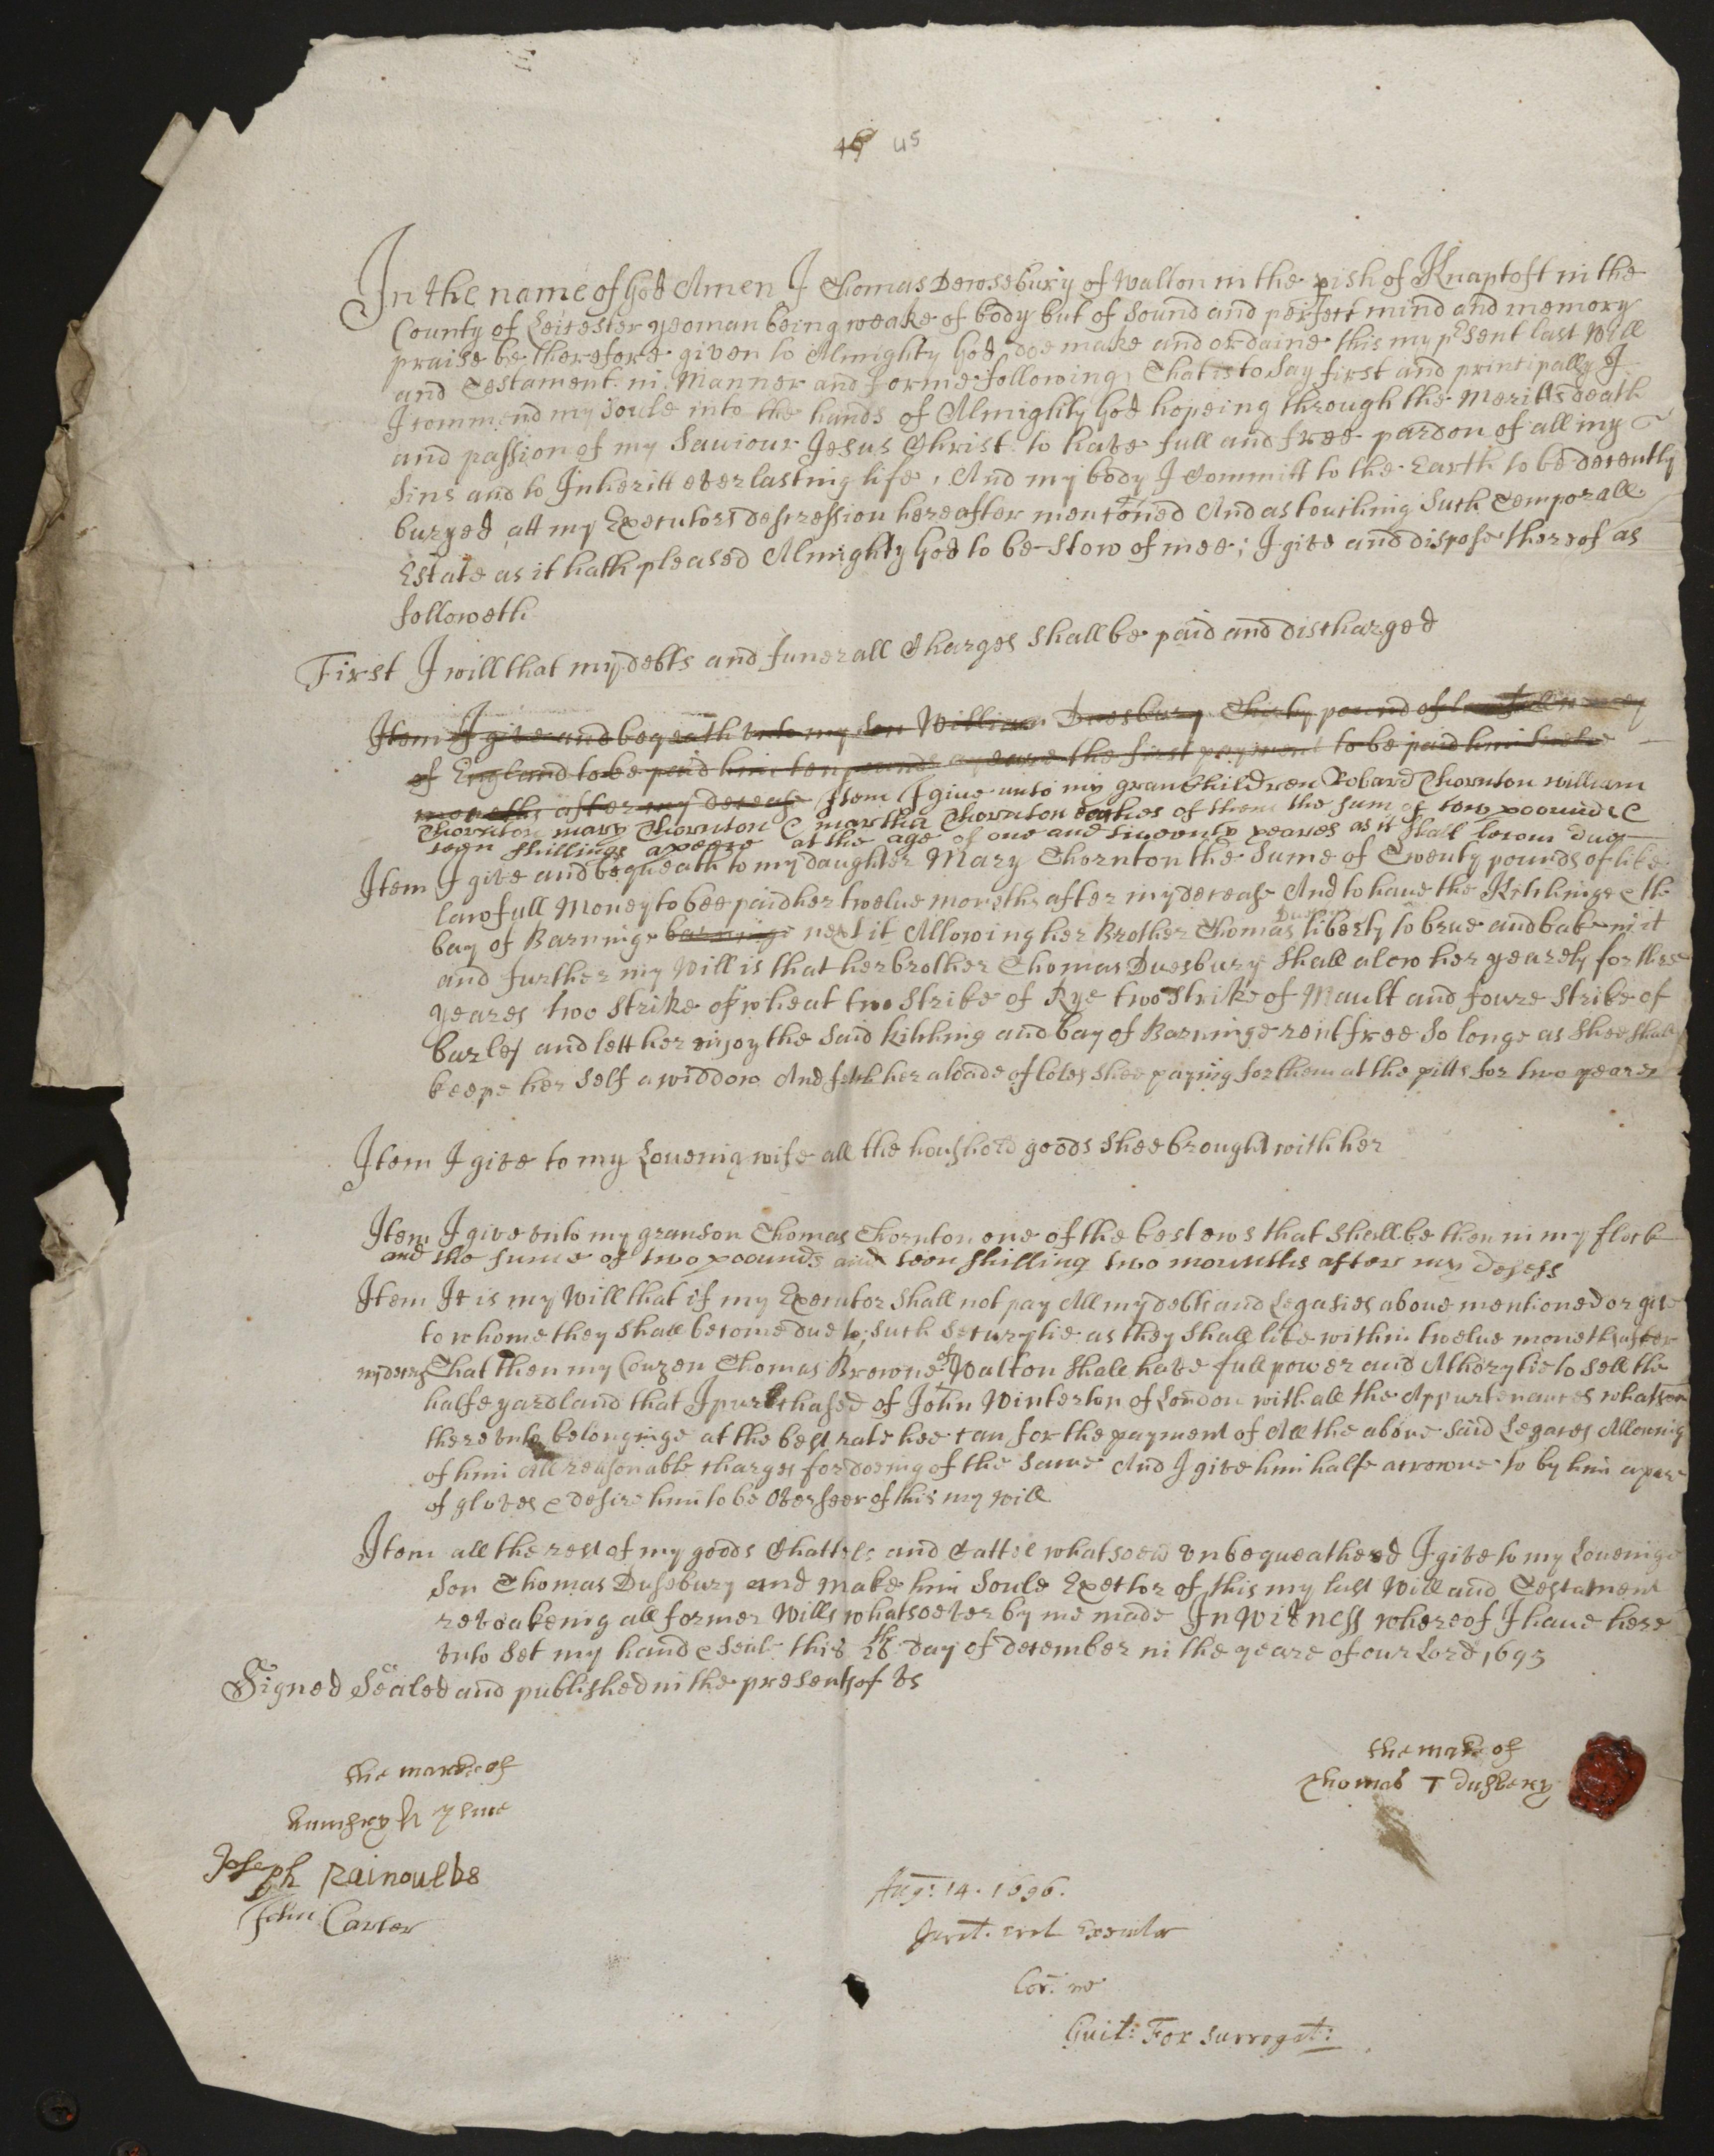 45
In the name of God Amen I Thomas Dewsebury of Walton in the pish of Knaptoft in the
County of Leicester yeoman being weake of body but of sound and perfect mind and memory
praise be therefore given to Almighty God doe make and ordaine this my psent last Will
and Testament in Manner and forme following, That is to say first and principally I
I commend my soule into the hands of Almighty God hopeing through the Meritts death
and passion of my Saviour Jesus Christ to have full and free pardon of all my
Sins and to Inheritt everlasting life, And my body I Committ to the Earth to be decently
buryed att my Executors descression hereafter mentoned And as touching such Temporall
Estate as it hath pleased Almighty God to be-stow of mee; I give and dispose thereof as
followeth
First I will that my debts and funerall Charges shall be paid and discharged
Item I give and beqeath unto my son William Duesbury Thirty pound of lawfull money
of England to be paid him ten pounds a yeare the first payment to be paid him twelve
moneths after my decease Item I give unto my granchildren Robard Thornton william
Thornton mary Thornton & martha Thornton eathes of them the sum of tow poounds &
teen shillings apeere at the age of one and twoenty yeares as it shall becom due
Item I give and bequeath to my daughter Mary Thornton the Sume of Twenty pounds of like
lawfull Money to bee paid her twelve moneths after my decease And to have the Kitchinge & the
bay of Barninge barninge next it Allowing her Brother Thomas liberty to brue and bake in it
and further my Will is that her brother Thomas Duesbury shall alow her yearely for three
yeares two strike of wheat two strike of Rye two strike of Mault and foure strike of
barley and lett her injoy the said kitching and bay of Barninge rent free so longe as shee shall
keepe her self a widdow And fetch her a loade of coles shee paying for them at the pitts for two yeares
Item I give to my Loueing wife all the houshold goods shee brought with her
Item I give unto my granson Thomas Thornton one of the best ews that shall be then in my flock
and the sume of two poounds and teen shilling two mounths after my deses
Item It is my Will that if my Executor shall not pay All my debts and Legasies above mentioned or give
to whome they shall become due to, such securytie as they shall like within twelue moneths after
my deces That then my Couzen Thomas Browne of Walton shall have full power and Athorytie to sell the
halfe yardland that I purchased of John Winterton of London with all the Appurtenances whatsoever
there unto belonginge at the best rate hee can for the payment of All the above said Legaces Allowing
of him All reasonable charges for doeing of the same And I give him halfe a crowne to by him a pare
of gloves & desire him to be Oversoer of this my will
Item all the rest of my goods Chattels and Cattle whatsoever unbequeathed I give to my Loueinge
Son Thomas Dusbury and make him Soule Exector of this my last Will and Testament
revoakeing all former Wills whatsoever by me made In Witness whereof I haue here
unto set my hand & seale this 28th day of december in the yeare of our Lord 1693
Signed Sealed and published in the presents of us
the marke of
Humfrey H
Joseph Rainoulds
John Carter
the marke of
Thomas T Dusbery
Aug: 14. 1696.
Jurat. Executor
Cor. me
Guil: Fox Surrogat: